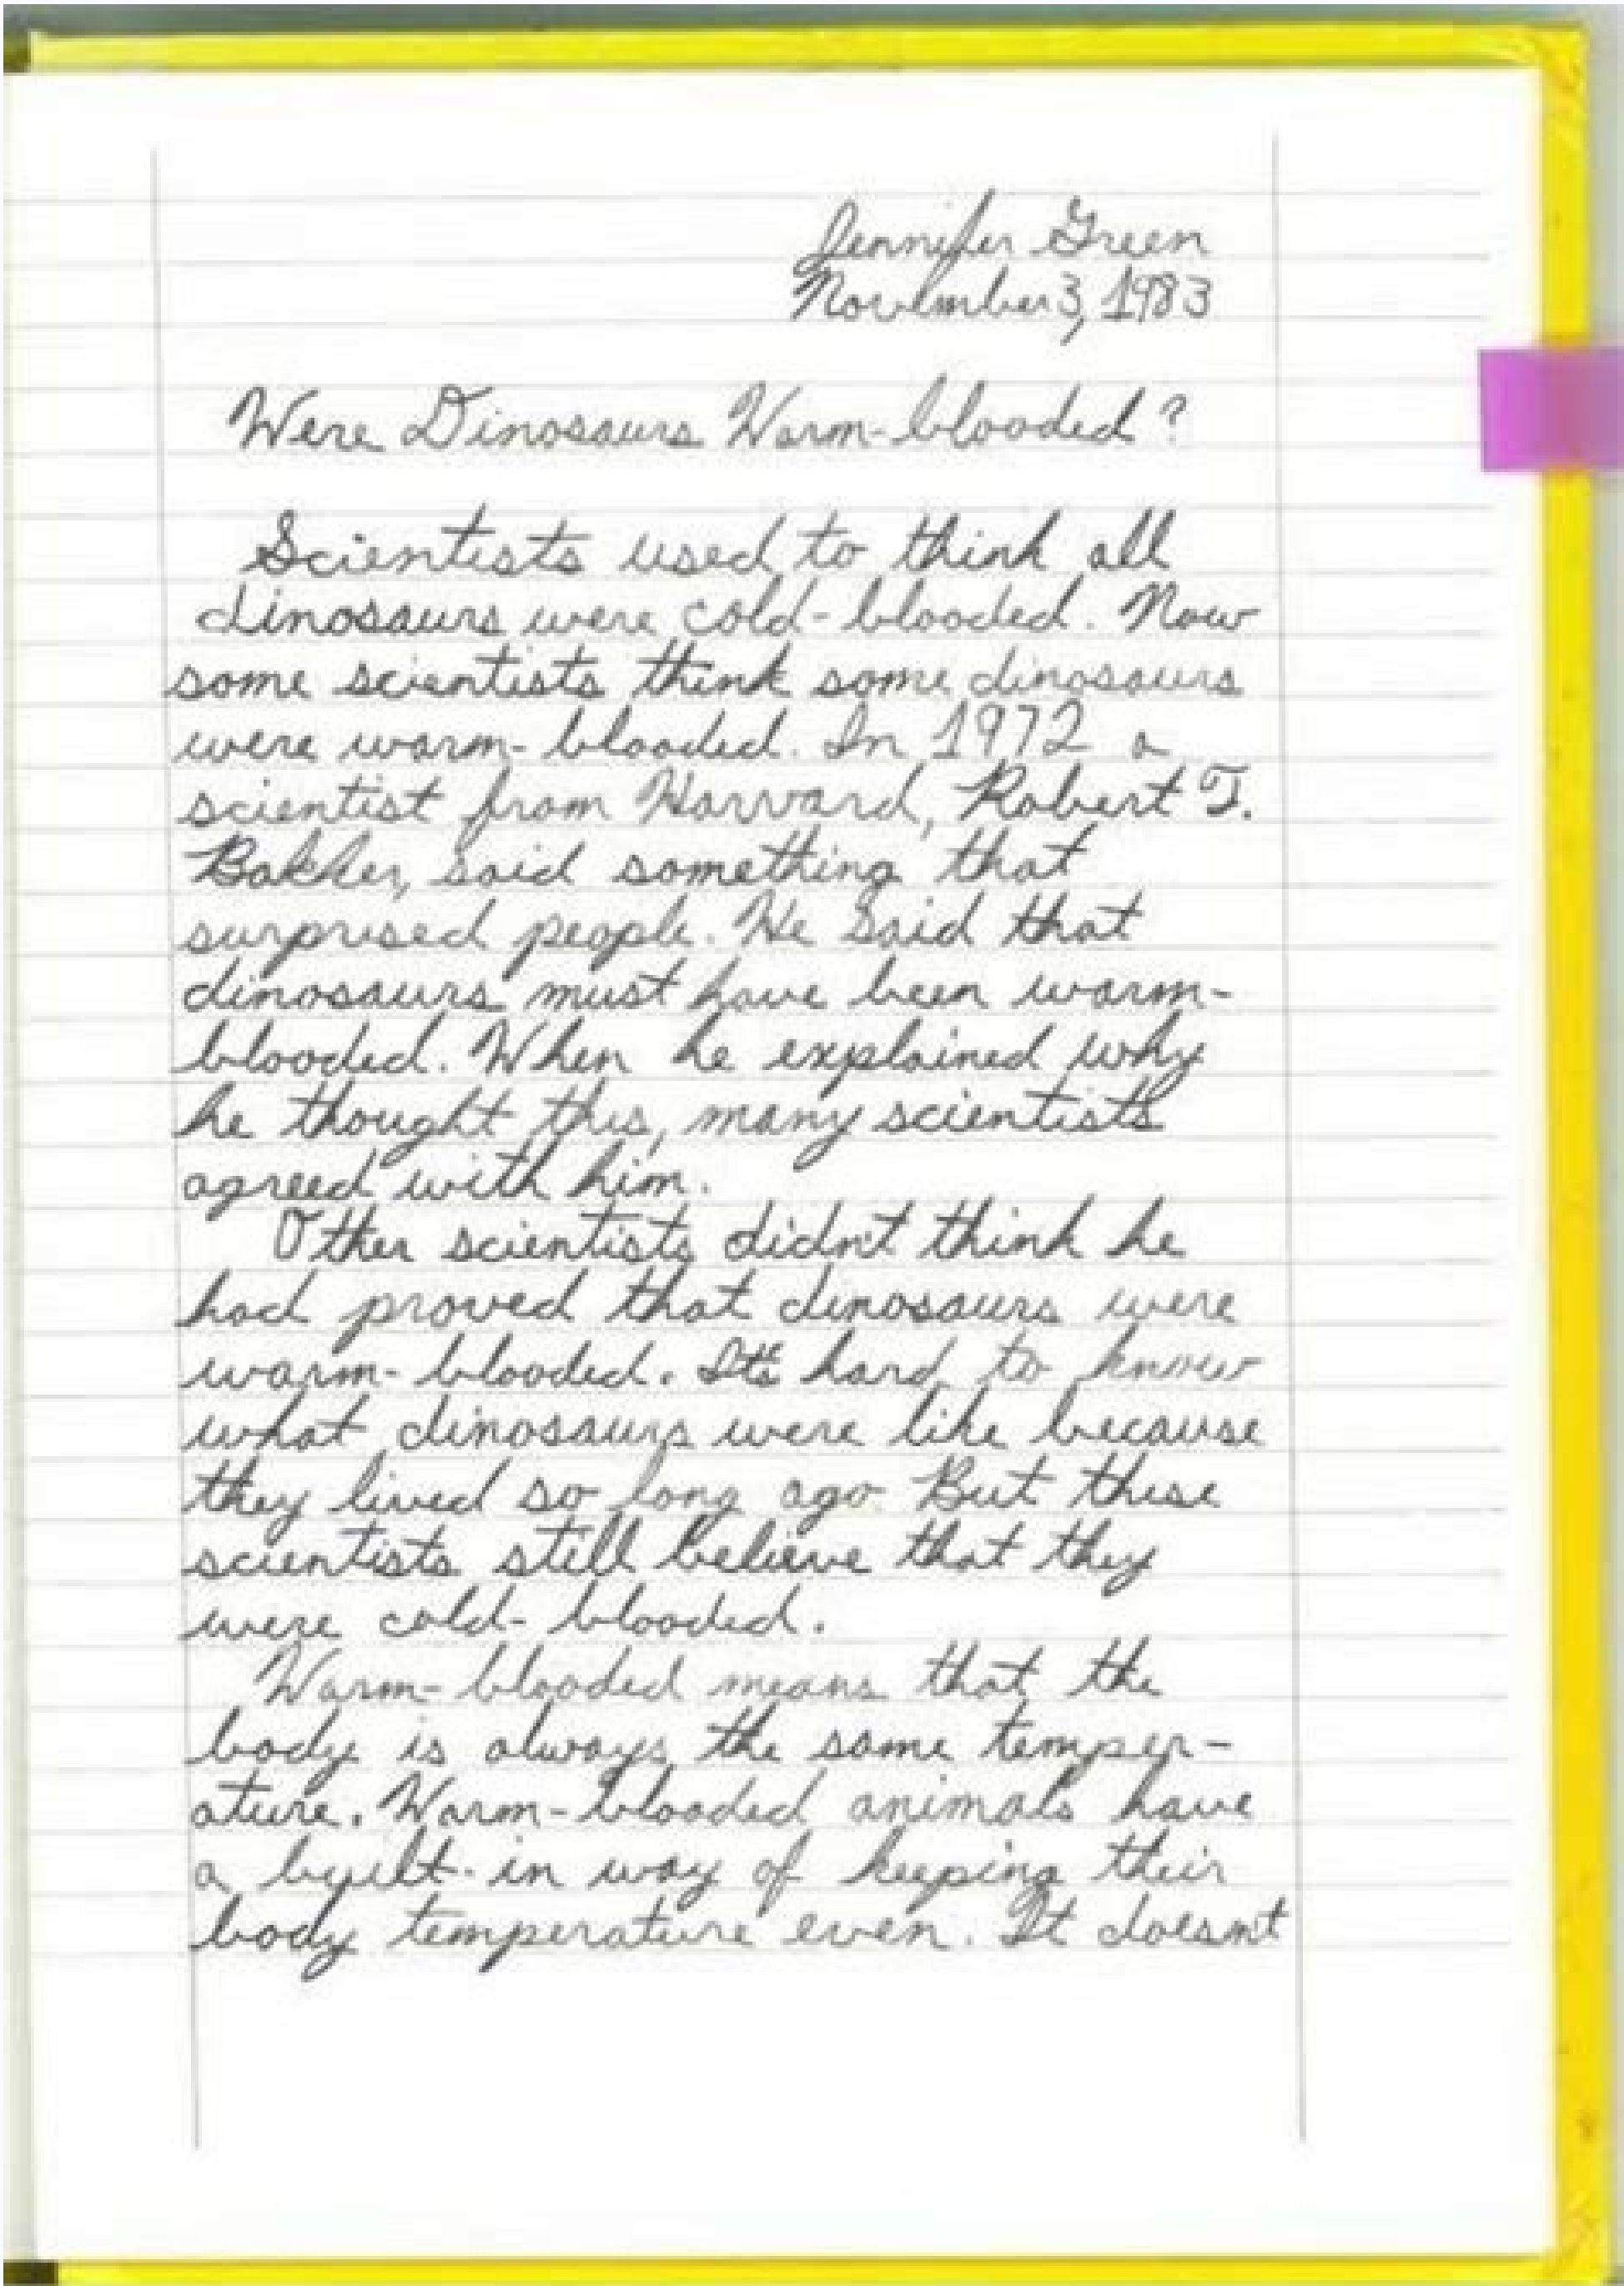 Jennifer Green
November 3, 1983
Were Dinosaurs Warm-blooded?
Scientists used to think all
dinosaurs were cold-blooded. Now
some scientists think some dinosaurs
were warm-blooded. In 1972 a
scientist from Harvard, Robert T.
Bakker, said something that
surprised people. He said that
dinosaurs must have been warm-
blooded. When he explained why
he thought this, many scientists
agreed with him.
Other scientists didn't think he
had proved that dinosaurs were
warm-blooded. It's hard to know
what dinosaurs were like because
they lived so long ago. But these
scientists still believe that they
were cold-blooded.
Warm-blooded means that the
body is always the same temper-
ature. Warm-blooded animals have
a built-in way of keeping their
body temperature even. It doesn't